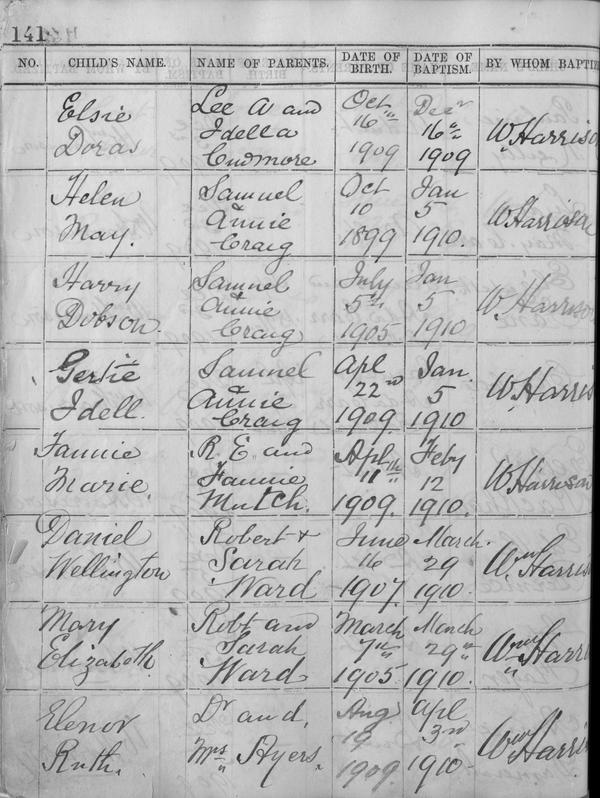 141
NO. CHILD'S NAME. NAME OF PARENTS. DATE OF BIRTH. DATE OF BAPTISM. BY WHOM BAPTIZ
Elsie Lee A and Oct Decr
Doras Idella 16th 16th W Harrison
Cudmore 1909 1909
Helen Samuel Oct Jan
& Annie 10 5 W Harrison
May. Craig 1899 1910.
Harry Samuel July Jan
& Annie 5th 5 W Harrison
Dobson. Craig 1905 1910.
Gertie Samuel Apl Jan.
& Annie 22nd 5 W Harris
Idell. Craig 1909. 1910
Fannie R. E. and Apl Feby
Marie. Fannie 11th 12 W Harrison
Mutch. 1909. 1910.
Daniel Robert & June March.
Wellington Sarah 16 29 Wm Harris
Ward 1907. 1910.
Mary Robt and March March
Elizabeth. Sarah 7th 29th Wm Harri
Ward. 1905. 1910.
Elenor Dr and. Aug Apl
Ruth. Mrs Ayers. 19 3rd Wm Harri
1909. 1910.